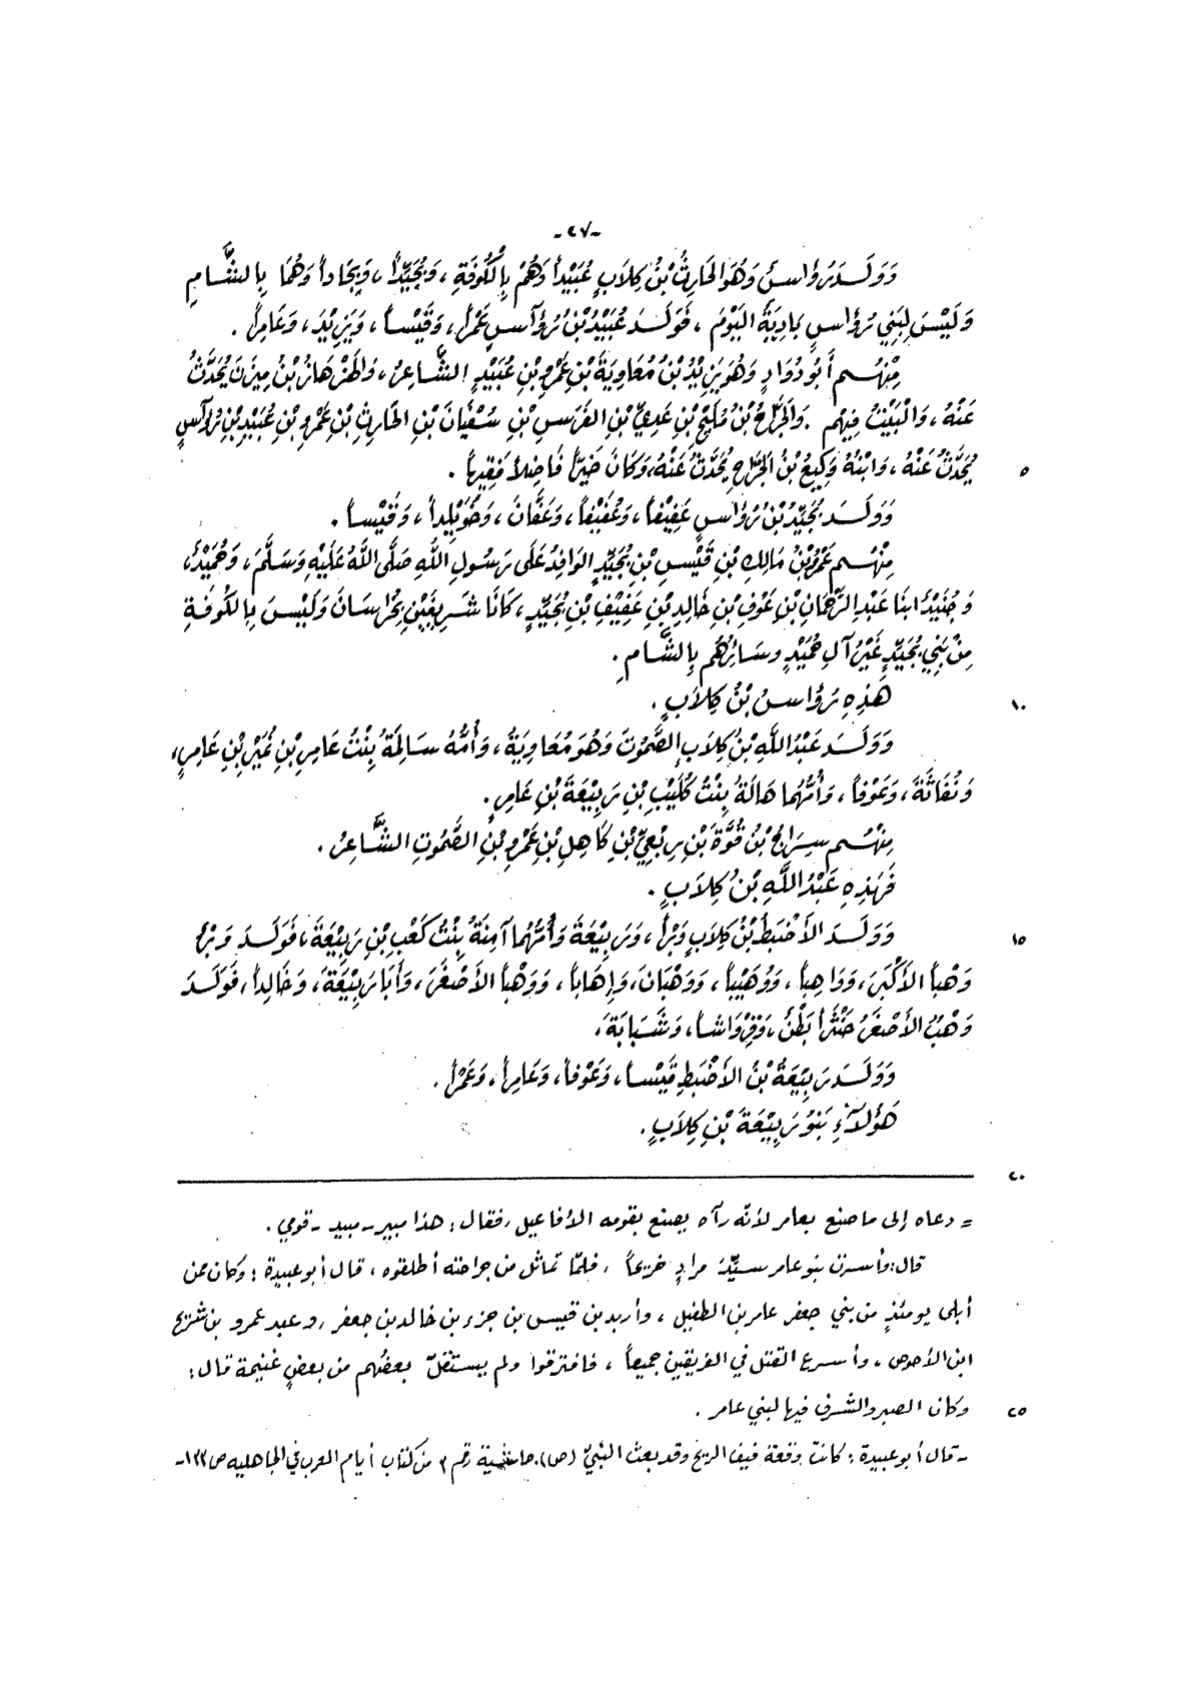 -٤٧-
وَوَلَدَ رُؤَاسُ وَهُوَ الحَارِثُ بْنُ كِلَابٍ عُبَيْداً وَهُمْ بِالْكُوفَةِ ، وَبُجَيِّداً ، وَبِجَاداً وَهُمَا بِالشَّامِ
وَلَيْسَ لِبَنِي رُؤَاسٍ بَادِيَةٌ اليَوْمَ ، فَوَلَدَ عُبَيْدُ بْنُ رُؤَاسٍ عَمْراً ، وَقَيْساً ، وَيَزِيْدَ ، وَعَامِراً .
مِنْهُم أَبُو دُوَادٍ وَهُوَ يَزِيْدُ بْنُ مُعَاوِيَةَ بْنِ عَمْرِو بْنِ عُبَيْدٍ الشَّاعِرُ ، وَالهَزْهَازُ بْنُ مِيزَنَ يُحَدَّثُ
عَنْهُ ، وَالْبَيْتُ فِيهِم . وَالجَرَّاحُ بْنُ مُلَيْحِ بْنِ عَدِيِّ بْنِ الفَرَسِ بْنِ سُفْيَانَ بْنِ الحَارِثِ بْنِ عَمْرِو بْنِ عُبَيْدِ بْنِ رُؤَاسٍ
يُحَدَّثُ عَنْهُ ، وَابْنُهُ وَكِيعُ بْنُ الجَرَّاحِ يُحَدَّثُ عَنْهُ، وَكَانَ خَيِّراً فَاضِلاً فَقِيهاً . ٥
وَوَلَدَ بُجَيِّدُ بْنُ رُؤَاسٍ عَفِيْفاً ، وَعُفَيْفاً ، وَعَفَّانَ ، وَخُوَيْلِداً ، وَقَيْساً .
مِنْهُم عَمْرُو بْنُ مَالِكِ بْنِ قَيْسِ بْنِ بُجَيِّدٍ الوَافِدُ عَلَى رَسُولِ اللَّهِ صَلَّى اللَّهُ عَلَيْهِ وَسَلَّمَ ، وَحُمَيْدٌ ،
وَجُنَيْدٌ ابْنَا عَبْدِ الرَّحْمَانِ بْنِ عَوْفِ بْنِ خَالِدِ بْنِ عَفِيْفِ بْنِ بُجَيِّدٍ ، كَانَا شَرِيفَيْنِ بِخُرَاسَانَ وَلَيْسَ بِالكُوفَةِ
مِنْ بَنِي بُجَيِّدٍ غَيْرُ آلِ حُمَيْدٍ وسَائِرُهُم بِالشَّامِ .
هَذِهِ رُؤَاسُ بْنُ كِلَابٍ . ١٠
وَوَلَدَ عَبْدُ اللَّهِ بْنُ كِلَابٍ الصَّمُوتَ وَهُوَ مُعَاوِيَةُ ، وَأُمُّهُ سَالِمَةُ بِنْتُ عَامِرِ بْنِ نُمَيْرِ بْنِ عَامِرٍ ،
وَنُفَاثَةَ ، وَعَوْفاً ، وَأُمُّهُمَا هَالَةُ بِنْتُ كُلَيْبِ بْنِ رَبِيْعَةَ بْنِ عَامِرٍ .
مِنْهُم سِرَاجُ بْنُ قُوَّةَ بْنِ رِبْعِيِّ بْنِ كَاهِلِ بْنِ عَمْرِو بْنِ الصَّمُوتِ الشَّاعِرُ .
فَهَذِهِ عَبْدُ اللَّهِ بْنُ كِلَابٍ .
وَوَلَدَ الأَضْبَطُ بْنُ كِلَابٍ وَبْراً ، وَرَبِيْعَةَ وَأُمُّهُمَا آمِنَةُ بِنْتُ كَعْبِ بْنِ رَبِيْعَةَ ، فَوَلَدَ وَبْرٌ ١٥
وَهْباً الأَكْبَرَ ، وَوَاهِباً ، وَوُهَيْباً ، وَوَهْبَانَ ، وَإِهَاباً ، وَوَهْباً الأَصْغَرَ ، وَأَبَا رَبِيْعَةَ ، وَخَالِداً ، فَوَلَدَ
وَهْبٌ الأَصْغَرُ حَنْثَراً بَطْنٌ ، وَقِرْوَاشاً ، وَشَبَابَةَ ،
وَوَلَدَ رَبِيْعَةُ بْنُ الأَضْبَطِ قَيْساً ، وَعَوْفاً ، وَعَامِراً ، وَعَمْراً .
هَؤُلَآءِ بَنُو رَبِيْعَةَ بْنِ كِلَابٍ .
٢٠
= دعاه إلى ما صنع بعامر لأنّه رآه يصنع بقومه الأفاعيل ، فقال : هذا مبير - مبيد - قومي .
قال : وأسرت بنو عامر سيّد مرادٍ جريحاً ، فلمّا تماثل من جراحته أطلقوه ، قال أبو عبيدة : وكان ممن
أبلى يومئذٍ من بني جعفر عامر بن الطفيل ، وأربد بن قيس بن جزء بن خالد بن جعفر ، وعبد عمرو بن شريح
ابن الأحوص ، وأسرع القتل في الفريقين جميعاً ، فافترقوا ولم يستقلّ بعضُهم من بعضٍ غنيمة قال :
وكان الصبر والشرف فيها لبني عامر . ٢٥
- قال أبو عبيدة : كانت وقعة فيف الريح وقد بعث النبيّ (ص). حاشية رقم ٣ من كتاب أيام العرب في الجاهلية ص ١٣٢-